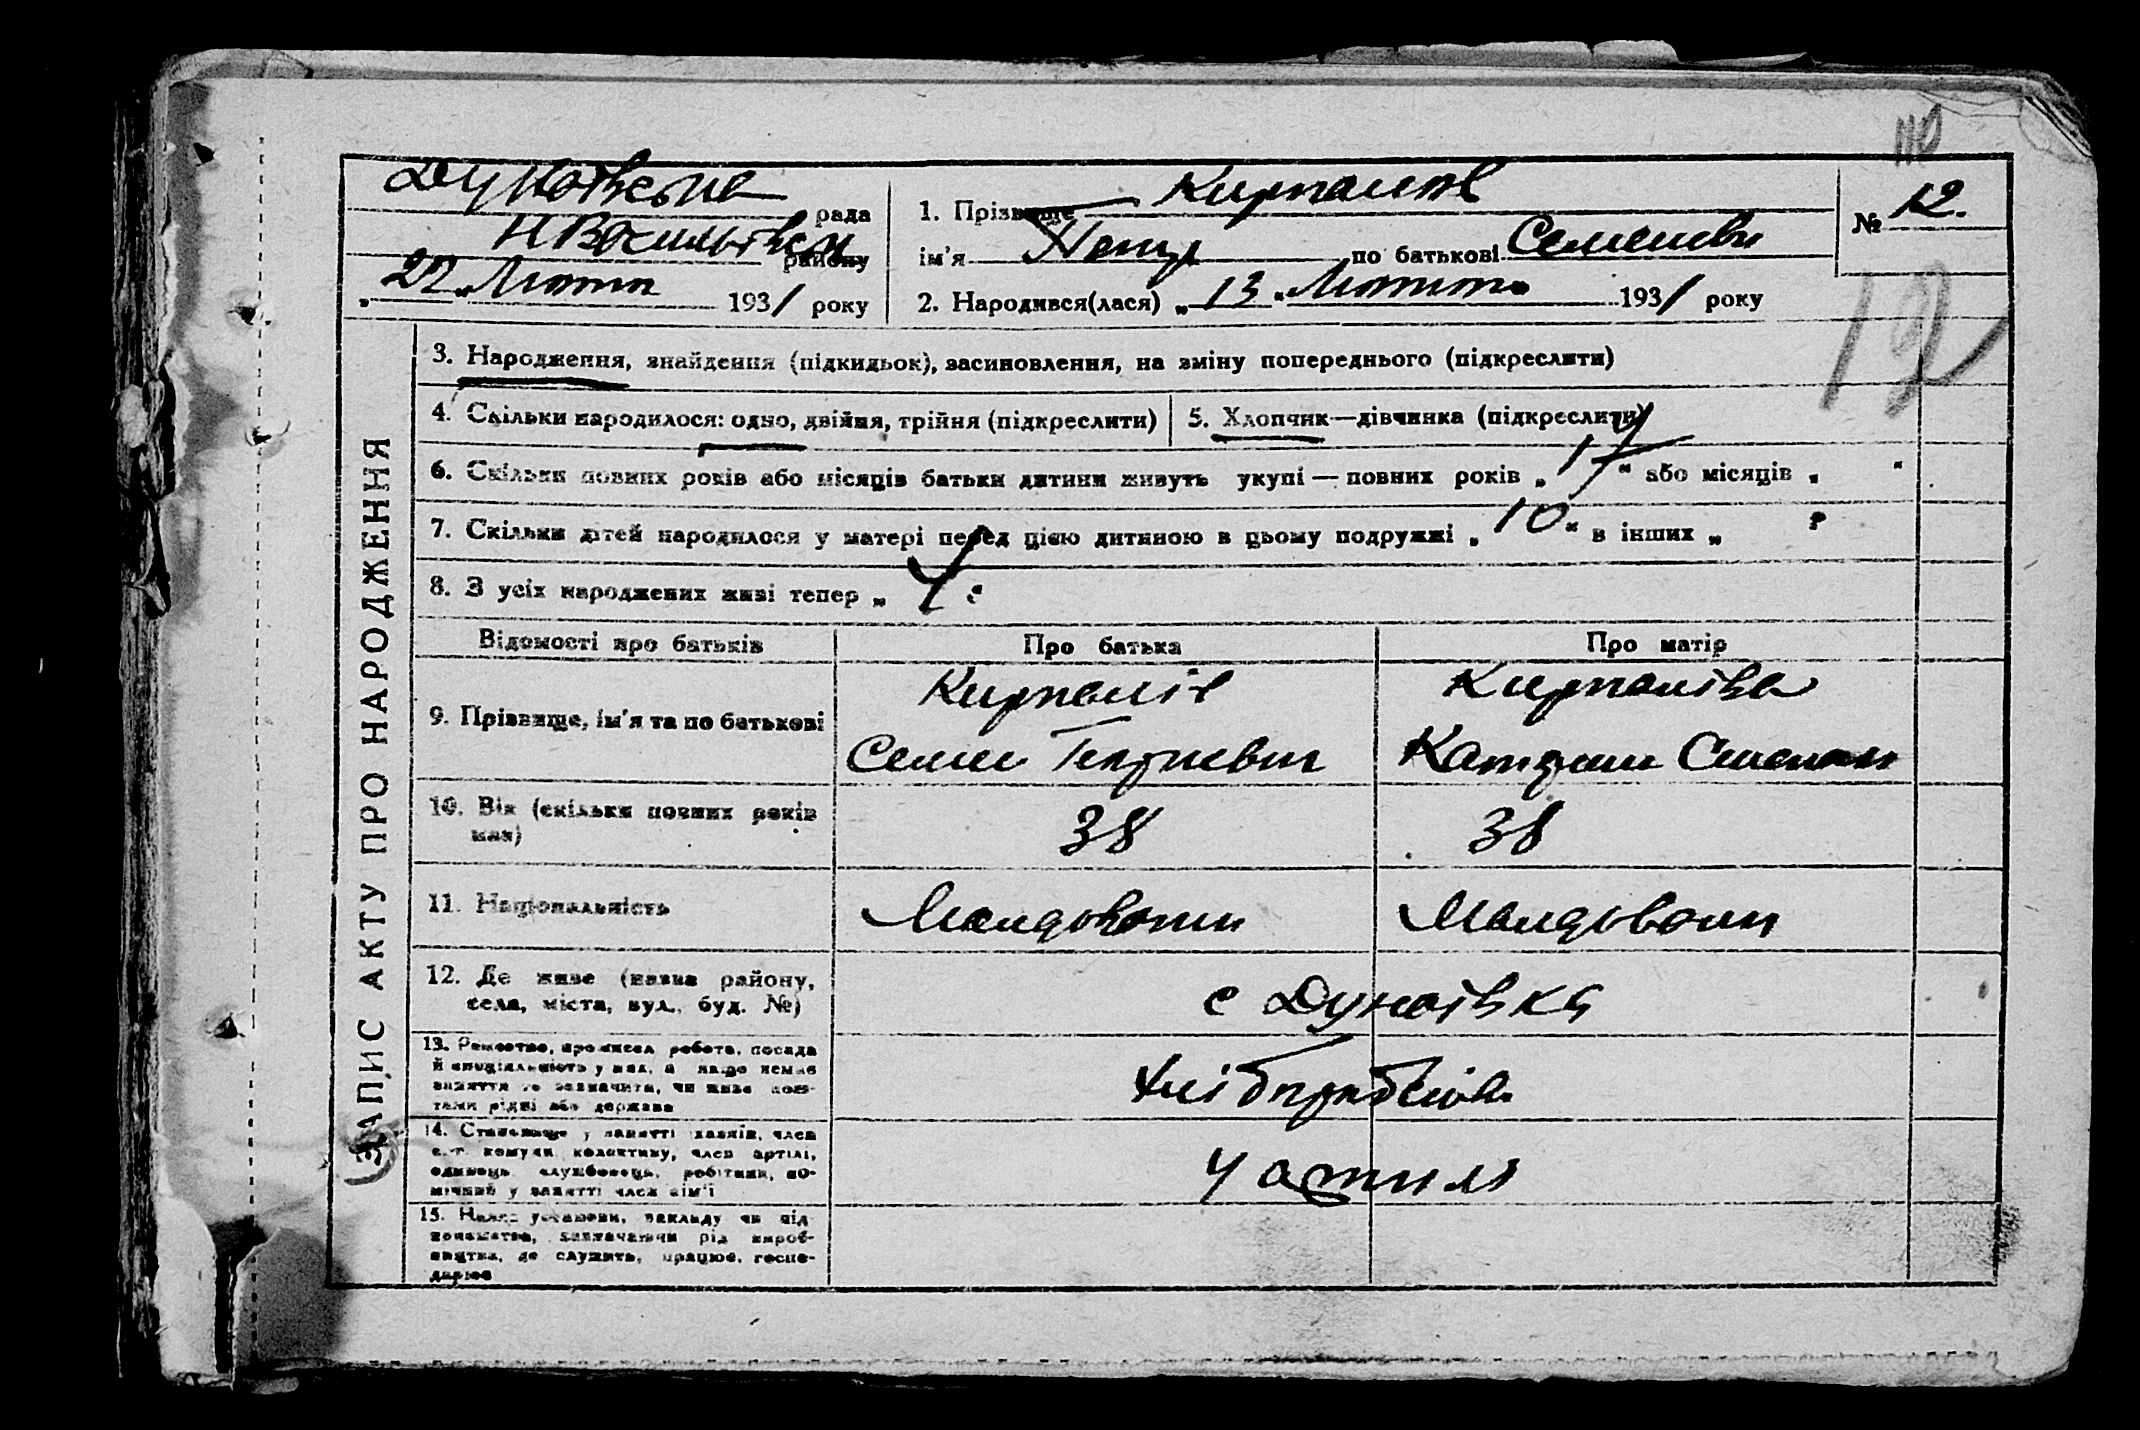 Дунаївська рада
Н Васильївськ району
„22“ Лютого 1931 року
1. Прізвище Кирпалів
№ 12.
ім'я Петр по батькові Семенови
2. Народився(лася) „13“ Лютого 1931 року
12
ЗАПИС АКТУ ПРО НАРОДЖЕННЯ
3. Народження, знайдення (підкидьок), засиновлення, на зміну попереднього (підкреслити)
4. Скільки народилося: одно, двійня, трійня (підкреслити)
5. Хлопчик—дівчинка (підкреслити)
6. Скільки повних років або місяців батьки дитини живуть укупі — повних років „17“ або місяців „ “
7. Скільки дітей народилося у матері перед цією дитиною в цьому подружжі „10“ в інших „ “
8. З усіх народжених живі тепер „ “
Відомості про батьків
Про батька
Про матір
9. Прізвище, ім'я та по батькові
Кирпалів
Семен
Кирпаліва
Катерина
10. Вік (скільки повних років має)
38
38
11. Національність
Молдовани
Молдовани
12. Де живе (назва району,
села, міста, вул., буд. №)
с Дунаївка
13. Ремество, промисел робота, посада
й спеціяльність у них, а якщо немає
заняття то зазначити, чи живе кош-
тами рідні або держави
Хлібороб
14. Становище у занятті хазяїн, член
с.-г комуни, колективу, член артілі,
одинець, службовець, робітник, по-
мічний у занятті член сім'ї
15. Назва установи, закладу чи під-
приємства, зазначаючи рід вироб-
ництва, де служить, працює, госпо-
дарює